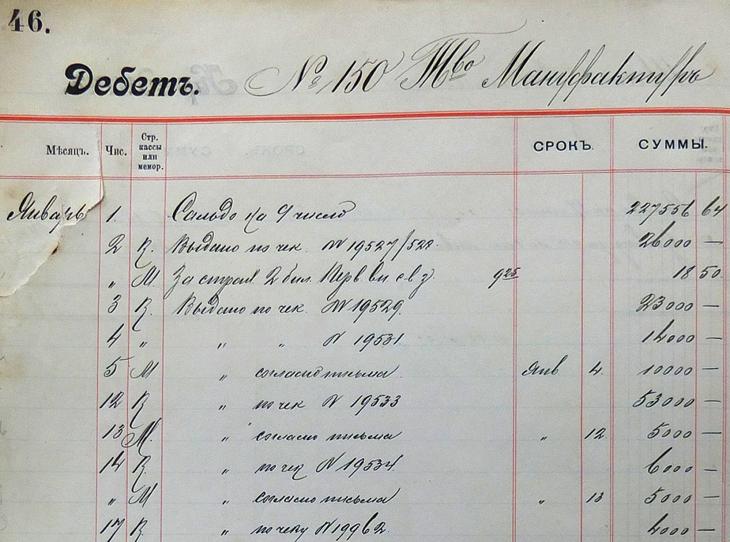 46.
Дебетъ. № 150 Т-во Мануфактуръ
Мѣсяцъ. Чис. Стр. кассы или мемор. СРОКЪ. СУММЫ.
Январь 1. Сальдо на число 227556 64
2 К. Выдано по чек. № 19527/528 26000 —
„ М За страх 2 бил. 9 25 18 50
3 К. Выдано по чек. № 19529 23000 —
4 „ „ „ № 19531 14000 —
5 М „ согласно письма Янв 4 10000 —
12 К „ по чек № 19533 53000 —
13 М. „ согласно письма „ 12 5000 —
14 К. „ по чек № 19534 6000 —
„ М „ согласно письма „ 13 5000 —
17 К. „ по чеку № 19962 4000 —